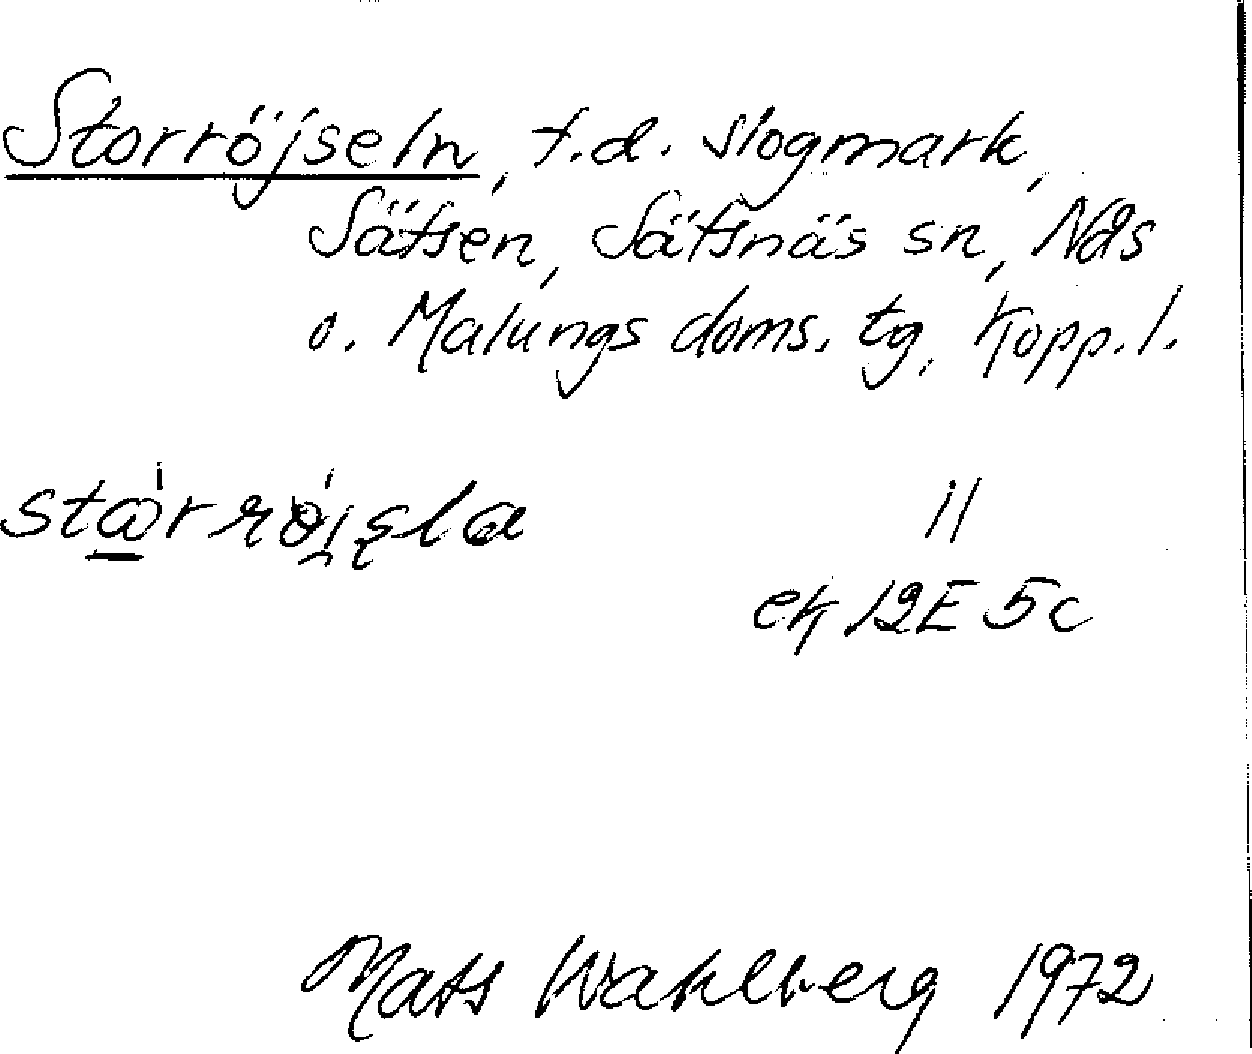 Storröjseln, f.d. slogmark,
Sätsen, Sätsnäs sn, Nås
o. Malungs doms. tg, Kopp. l.
stɷ̀rrø̀jsla il
ek 12E 5c
Mats Wahlberg 1972